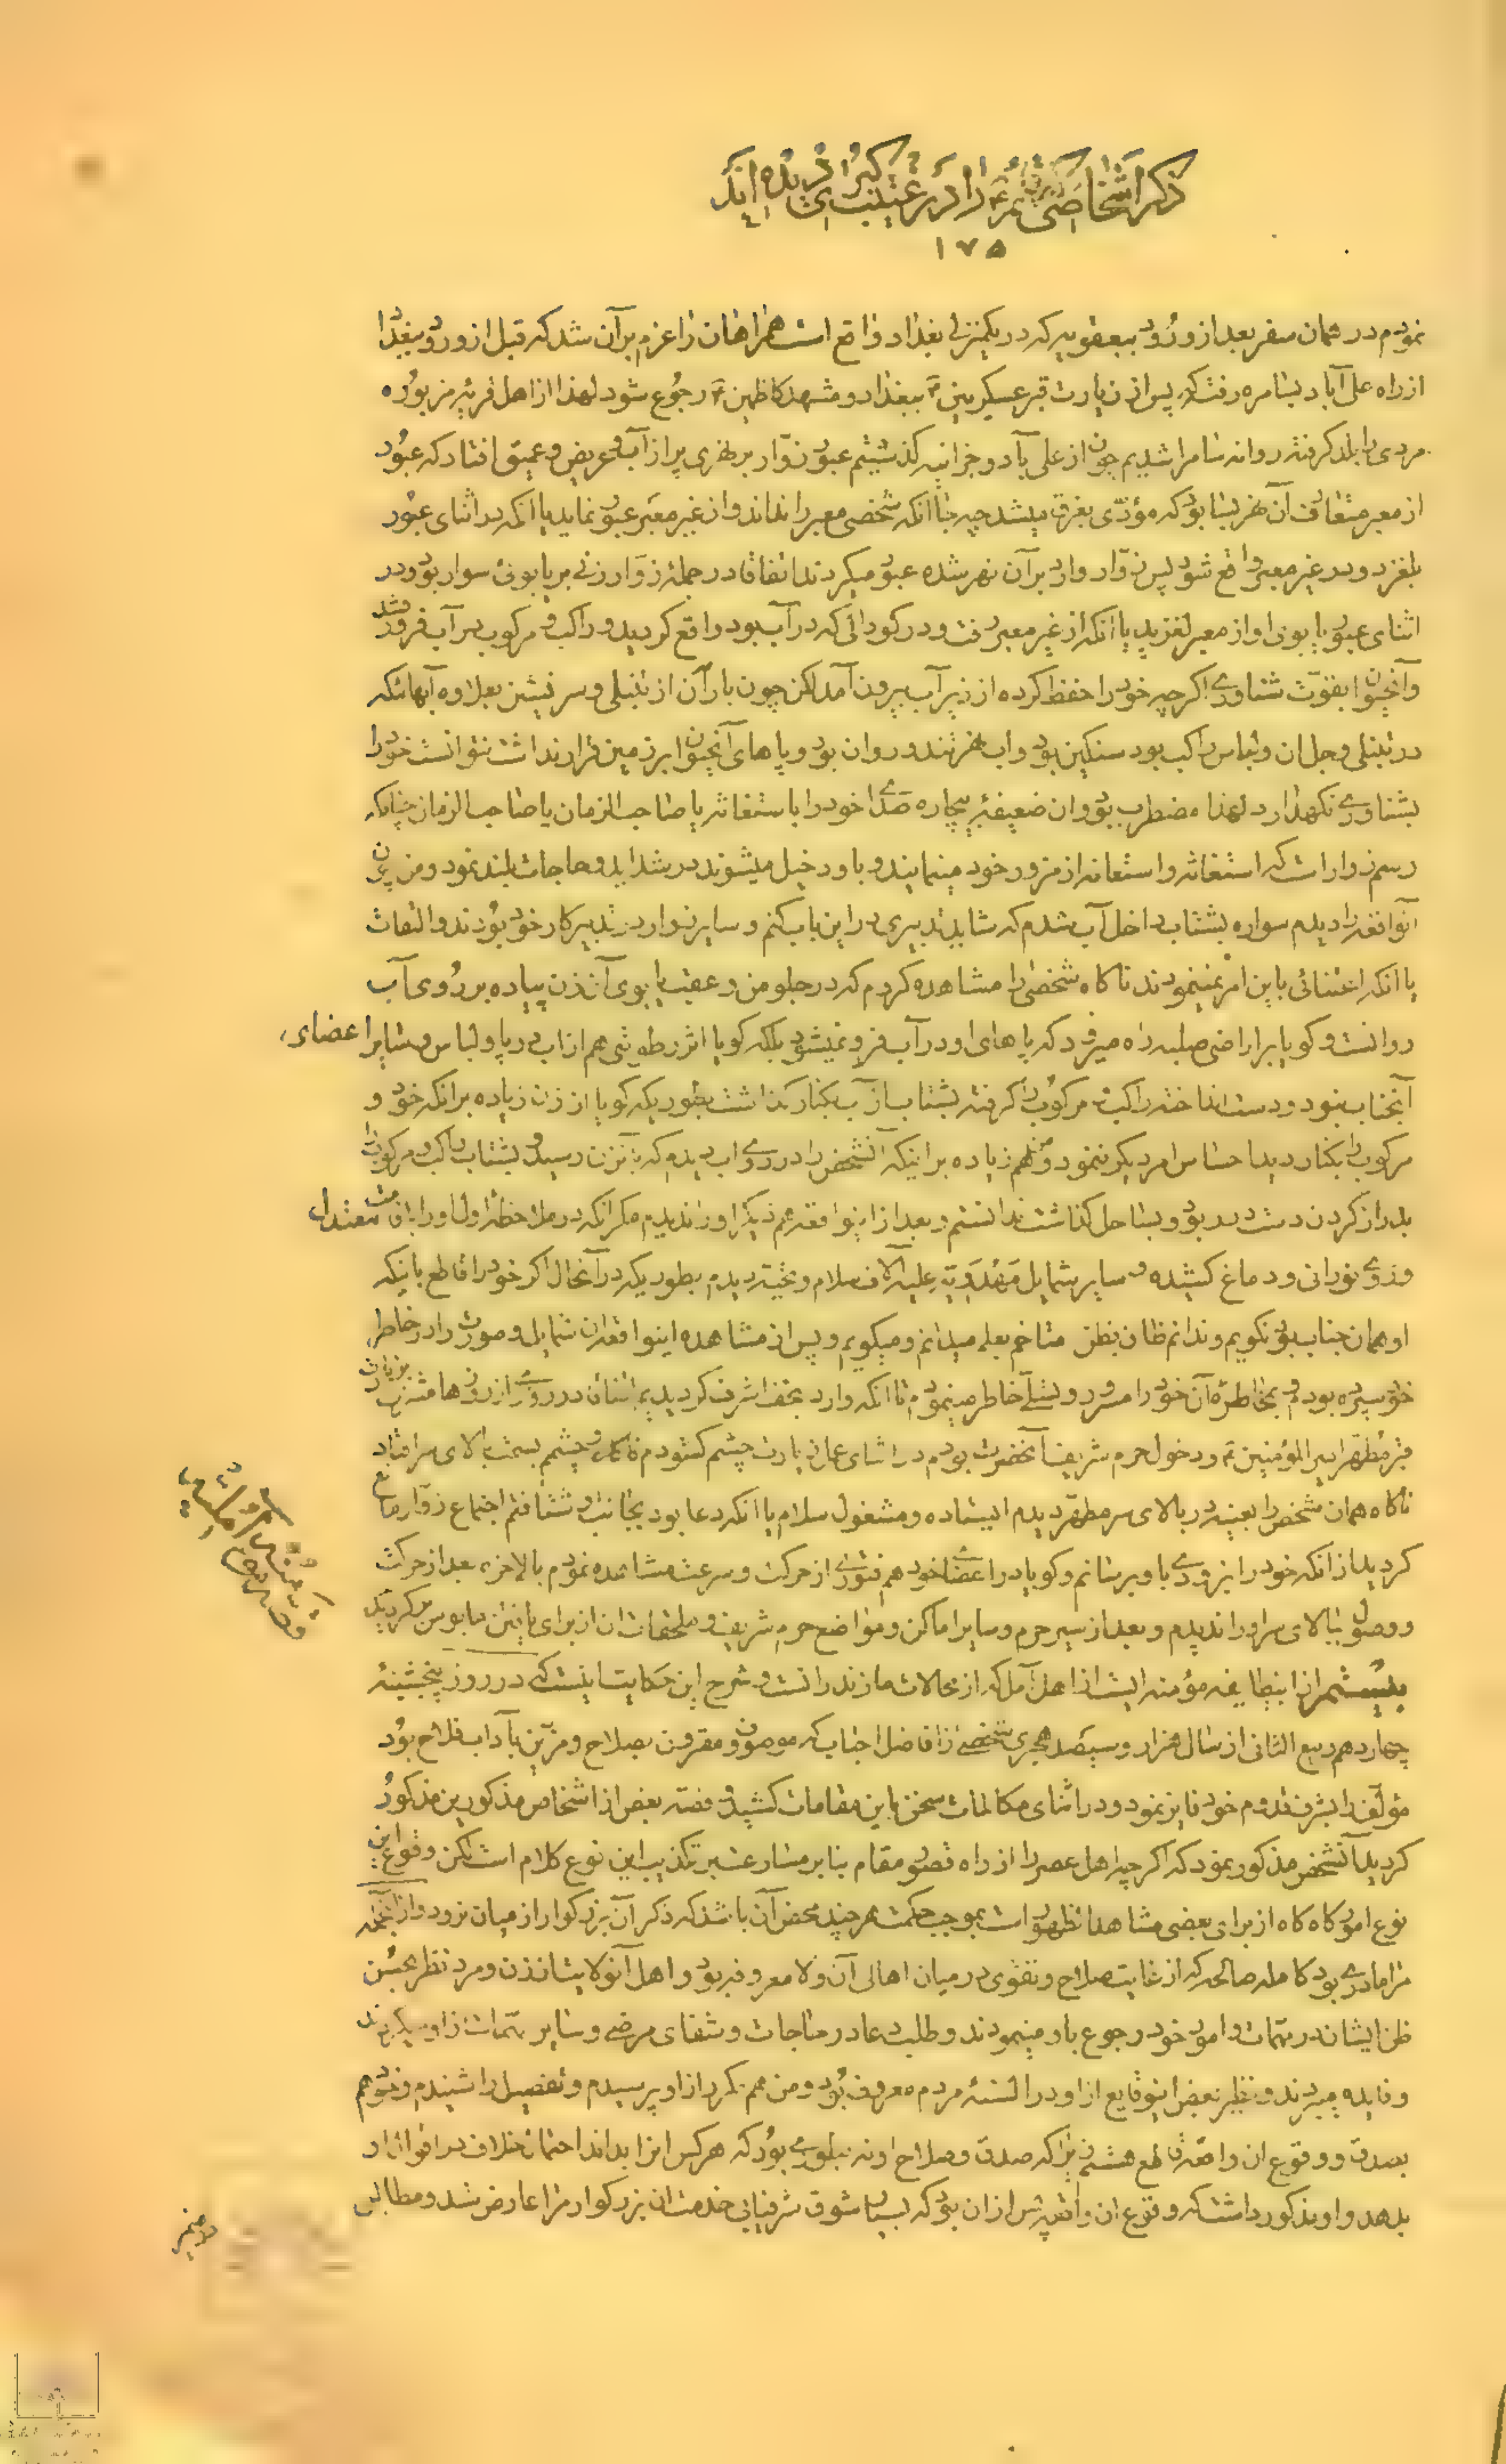 ذکر اشخاصی که آنحضرت را در غیبت کبری دیده اند
۱۷۵
نمودم در همان سفر بعد از ورود بیعقوبیه که در یکمنزلی بغداد واقع است همراهان را عزم بر آن شد که قبل از ورود ببغداد
از راه علی آباد بسامره رفته که پس از زیارت قبر عسکریین ببغداد و مشهد کاظمین رجوع شود لهذا از اهل قریه مزبوره
مردی را بلد گرفته روانه سامرا شدیم چون از علی آباد و جزانیه گذشتیم عبور زوار بر نهری پر از آب و عریض و عمیق افتاد که عبور
از معبر متعارف آن نهر بسا بود که مؤدی بغرق میشد چه جا آنکه شخصی معبر را نداند و از غیر معبر عبور نماید یا آنکه در اثنای عبور
بلغزد و در غیر معبر واقع شود پس زوار وارد بر آن نهر شده عبور میکردند اتفاقا در جمله زوار زنی بر یابوئی سوار بود و در
اثنای عبور یابوی او از معبر لغزید یا آنکه از غیر معبر رفت و در گودالی که در آب بود واقع گردید و راکب و مرکوب در آب فرو شد
و آنحیوان بقوت شناوری اگرچه خود را حفظ کرده از زیر آب بیرون آمد لکن چون بار آن از تنبلی و سرنشین بعلاوه آبهائیکه
در تنبلی و جل آن و لباس راکب بود سنگین بود و اب نهر تند و روان بود و پاهای آنحیوان بر زمین قرار نداشت نتوانست خود را
بشناوری نگهدارد لهذا مضطرب بود و ان ضعیفه بیچاره صدای خود را باستغاثه یا صاحب الزمان یا صاحب الزمان چنانکه
رسم زوار است که استغاثه و استعانه از مزور خود مینمایند و باو دخیل میشوند در شداید و حاجات بلند نمود و من چون
آنواقعه را دیدم سواره بشتاب داخل آب شدم که شاید تدبیری در این باب کنم و سایر زوار در تدبیر کار خود بودند و التفات
یا آنکه اعتنائی باین امر نمینمودند ناگاه شخصی را مشاهده کردم که در جلو من و عقب یابوی آنزن پیاده بر روی آب
روانست و گویا بر اراضی صلبه راه میرود که پاهای او در آب فرو نمیشود بلکه گویا اثر رطوبتی هم از اب در پا و لباس و سایر اعضای
آنجناب نبود و دست انداخته راکب و مرکوب را گرفته بشتاب از آب بکنار گذاشت بطوریکه گویا ان زن زیاده بر انکه خود و
مرکوب را بکنار دید احساس امر دیگر ننمود و من هم زیاده بر اینکه آنشخص را در روی اب دیدم که بآنزن رسید و بشتاب راکب و مرکوب را
بدراز کردن دست در ربود و بساحل گذاشت ندانستم و بعد از اینواقعه هم دیگر او را ندیدم مگر انکه در ملاحظه اول او را باقامت معتدل
و روی نورانی و دماغ کشیده و سایر شمایل مهدویه علیه آلاف سلام و تحیة دیدم بطوریکه در آنحال اگر خود را قاطع باینکه
او همان جناب بود نگویم و ندانم ظان بظن متاخم بعلم میدانم و میگویم و پس از مشاهده اینواقعه ان شمایل و صورت را در خاطر
خود سپرده بودم و بخاطره آن خود را مسرور و تسلی خاطر مینمودم تا انکه وارد نجف اشرف گردیدیم اتفاقا در روزی از روزها مشرف بزیارت
قبر مطهر امیر المؤمنین و دخول حرم شریف آنحضرت بودم در اثنای عمل زیارت چشم گشودم ناگاه چشمم بسمت بالای سر افتاد
ناگاه همان شخص را بعینه در بالای سر مطهر دیدم ایستاده و مشغول سلام یا انکه دعا بود بجانب او شتافتم اجتماع زوار مانع
گردید از انکه خود را بزودی باو برسانم و گویا در اعضای خود هم فتوری از حرکت و سرعت مشاهده نمودم بالاخره بعد از حرکت
و وصول ببالای سر او را ندیدم و بعد از سیر حرم و سایر اماکن و مواضع حرم شریف و ملحقات ان از برای یافتن مایوس برگردیدم
بیستم از اینطایفه مؤمنه ایست از اهل آمل که از محالات مازندرانست و شرح این حکایت اینست که در روز پنجشنبه
چهاردهم ربیع الثانی از سال هزار و سیصد هجری شخصی از افاضل احباب که موصوف و مقرون بصلاح و مزین بآداب فلاح بود
مؤلف را بشرف قدوم خود فایز نمود و در اثنای مکالمات سخن باین مقامات کشید و قصه بعض از اشخاص مذکورین مذکور
گردید آنشخص مذکور نمود که اگرچه اهل عصر را از راه قصور مقام بنا بر مسارعت بر تکذیب این نوع کلام است لکن وقوع این
نوع امور گاه گاه از برای بعضی مشاهد و بظهور است بموجب حکمت هر چند محض آن باشد که ذکر آن بزرگوار از میان نرود و از آنجمله
مرا مادری بود کامله صالحه که از غایت صلاح و تقوی در میان اهالی آن ولا معروفه بود و اهل آنولایت از زن و مرد نظر بحسن
ظن ایشان در مهمات و امور خود رجوع باو مینمودند و طلب دعا در حاجات و شفای مرضی و سایر مهمات از او میکردند
و فایده میبردند و نظیر بعض اینوقایع از او در السنه مردم معروف بود و من هم مکرر از او پرسیدم و تفصیل را شنیدم و خود هم
بصدق و وقوع ان واقعه قاطع هستم زیرا که صدق و صلاح او نه بطوری بود که هر کس انرا بداند احتمال خلاف در اقوال او
بدهد و او مذکور داشت که وقوع ان واقعه پس از ان بود که بسیار شوق شرفیابی خدمت ان بزرگوار مرا عارض شد و مطالب
قصه زن آملیه
در ضمیر